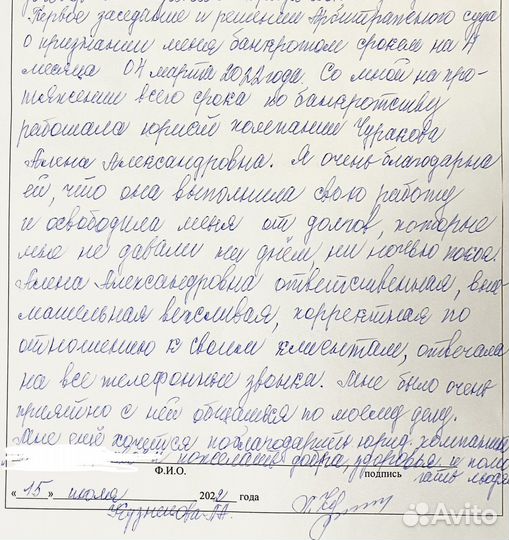 Первое заседание и решении Арбитражного суда
о признании меня банкротом сроком на 4
месяца 04 марта 2022 года. Со мной на про-
тяжении всего срока по банкротству
работала юрист компании Чуракова
Алена Александровна. Я очень благодарна
ей, что она выполнила свою работу
и освободила меня от долгов, которые
мне не давали ни днём ни ночью покоя.
Алена Александровна ответственная, вни-
мательная вежливая, корректная по
отношению к своим клиентам, отвечала
на все телефонные звонки. Мне было очень
приятно с ней общаться по моему делу.
Мне ещё хочется поблагодарить юрид. компанию
и пожелать добра, здоровья и помо
гать людям
Ф.И.О. подпись
« 15 » июля 2022 года
Кузнецова
Avito